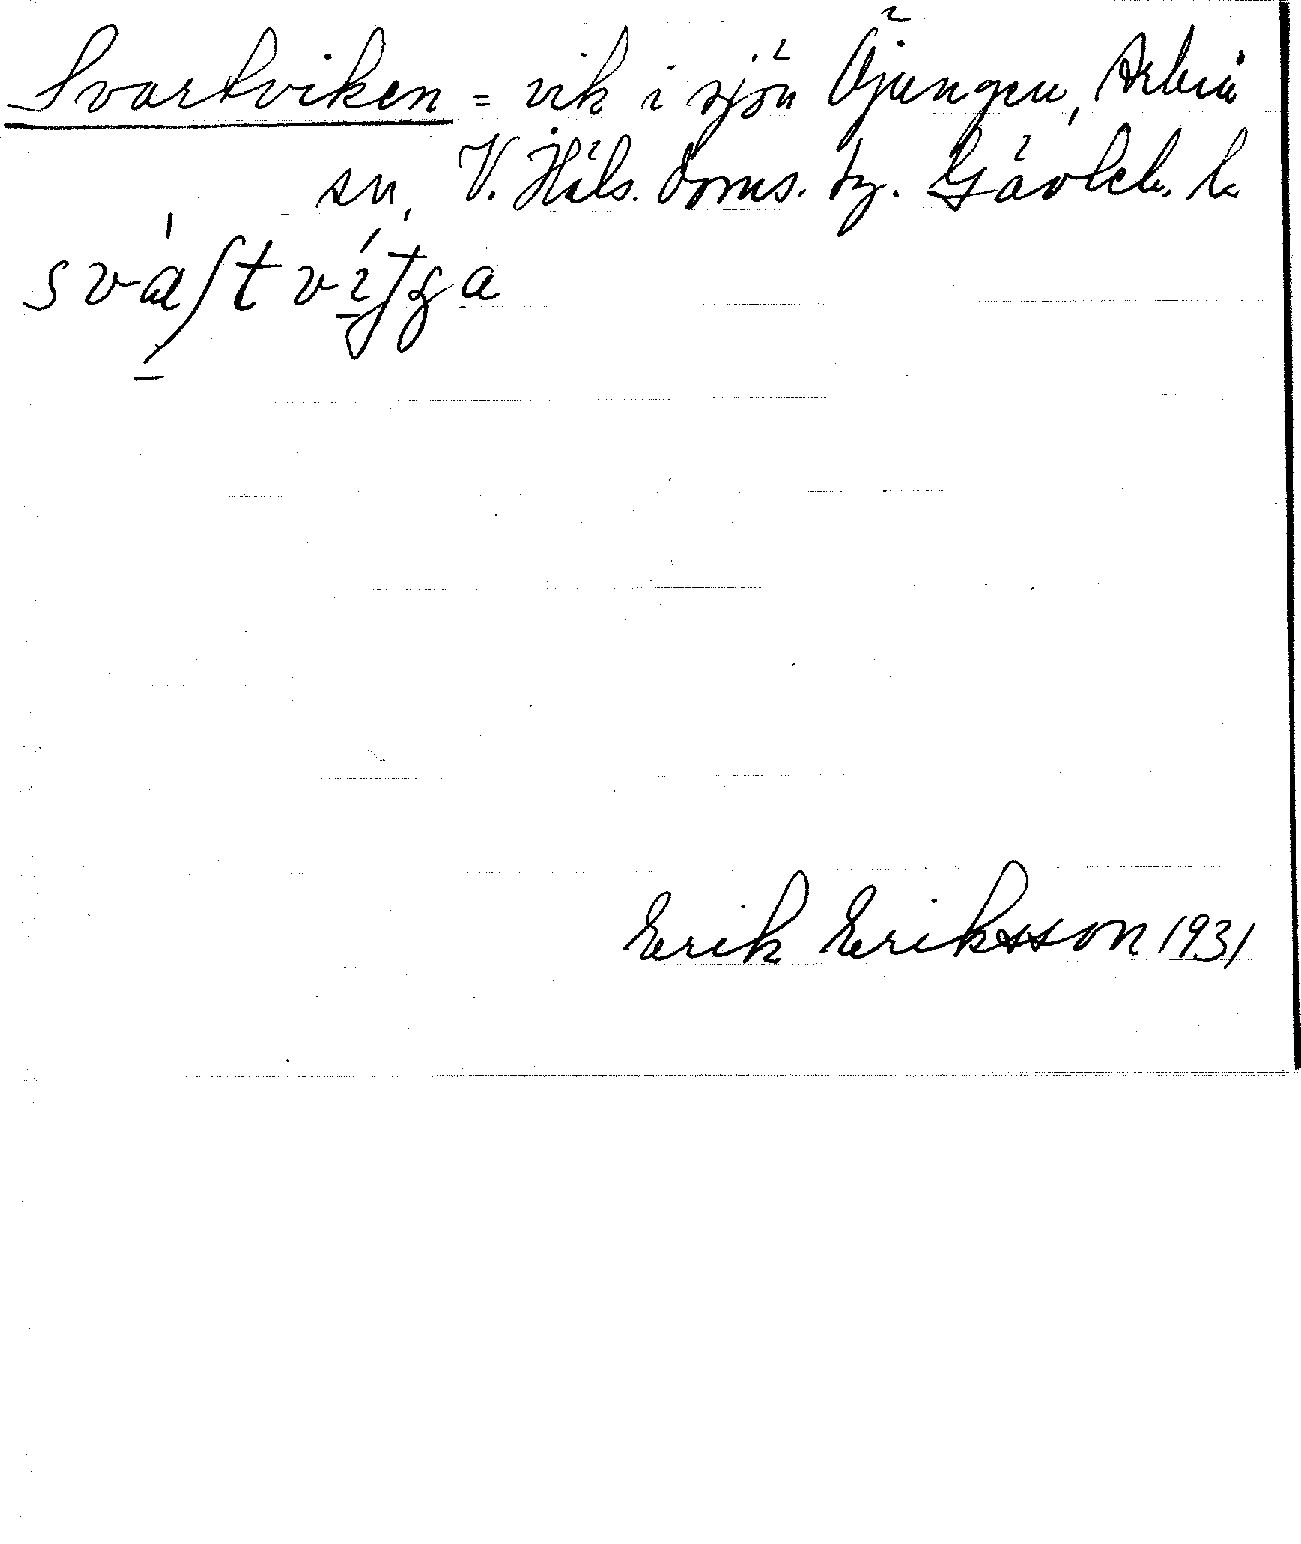 Svartviken = vik i sjön Öjungen, Arbrå
sn, V. Häls. doms. tg. Gävleb. l.
Erik Eriksson 1931